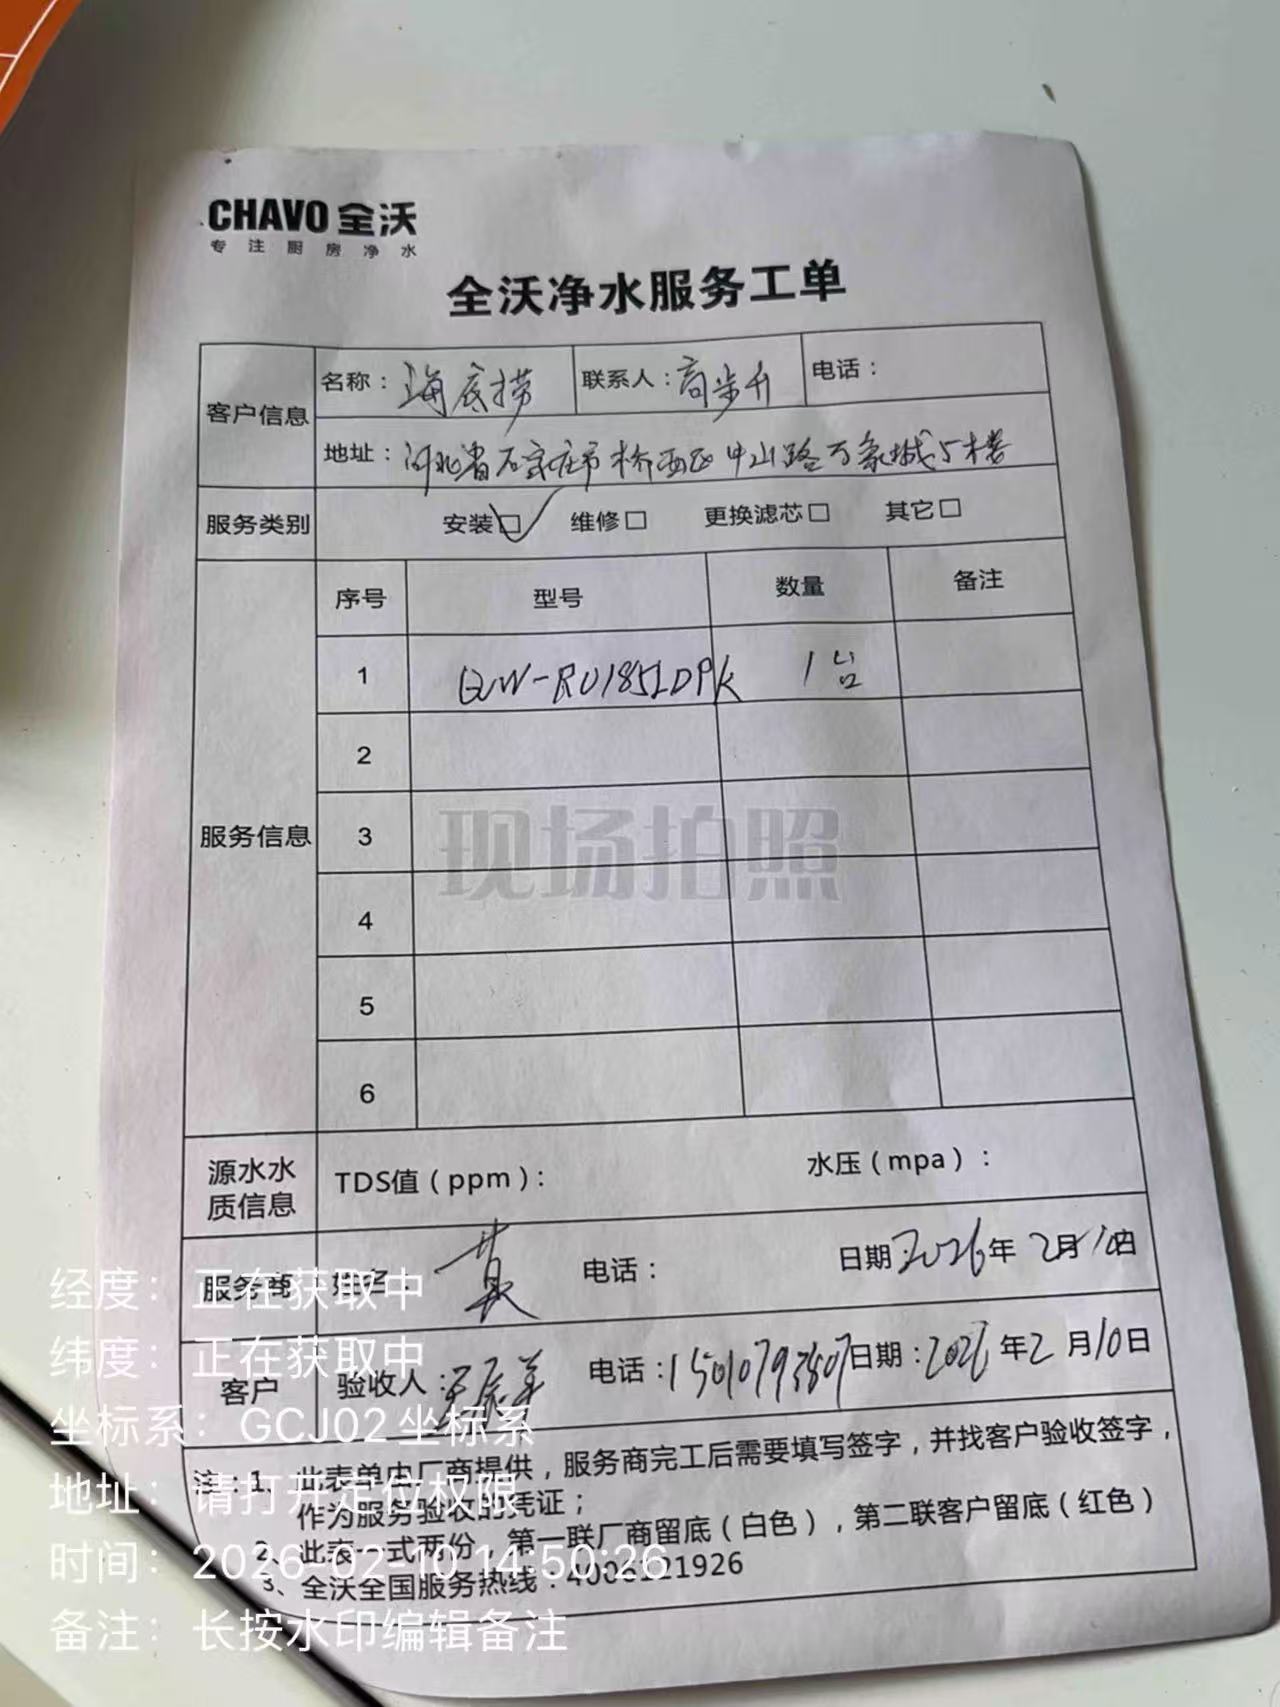 CHAVO 全沃
专注厨房净水
全沃净水服务工单
客户信息 名称：海底捞 联系人：高步升 电话：
地址：河北省石家庄市桥西区中山路万象城5楼
服务类别 安装☑ 维修□ 更换滤芯□ 其它□
服务信息 序号 型号 数量 备注
1 QW-RU1851DPK 1台
2
3
4
5
6
现场拍照
源水水质信息 TDS值（ppm）： 水压（mpa）：
服务商 姓名： 电话： 日期：2026年2月10日
客户 验收人： 电话：15010793807 日期：2026年2月10日
注：1、此表单由厂商提供，服务商完工后需要填写签字，并找客户验收签字，
作为服务验收的凭证；
2、此表一式两份，第一联厂商留底（白色），第二联客户留底（红色）
3、全沃全国服务热线：4006121926
经度：正在获取中
纬度：正在获取中
坐标系：GCJ02坐标系
地址：请打开定位权限
时间：2026-02-10 14:50:26
备注：长按水印编辑备注